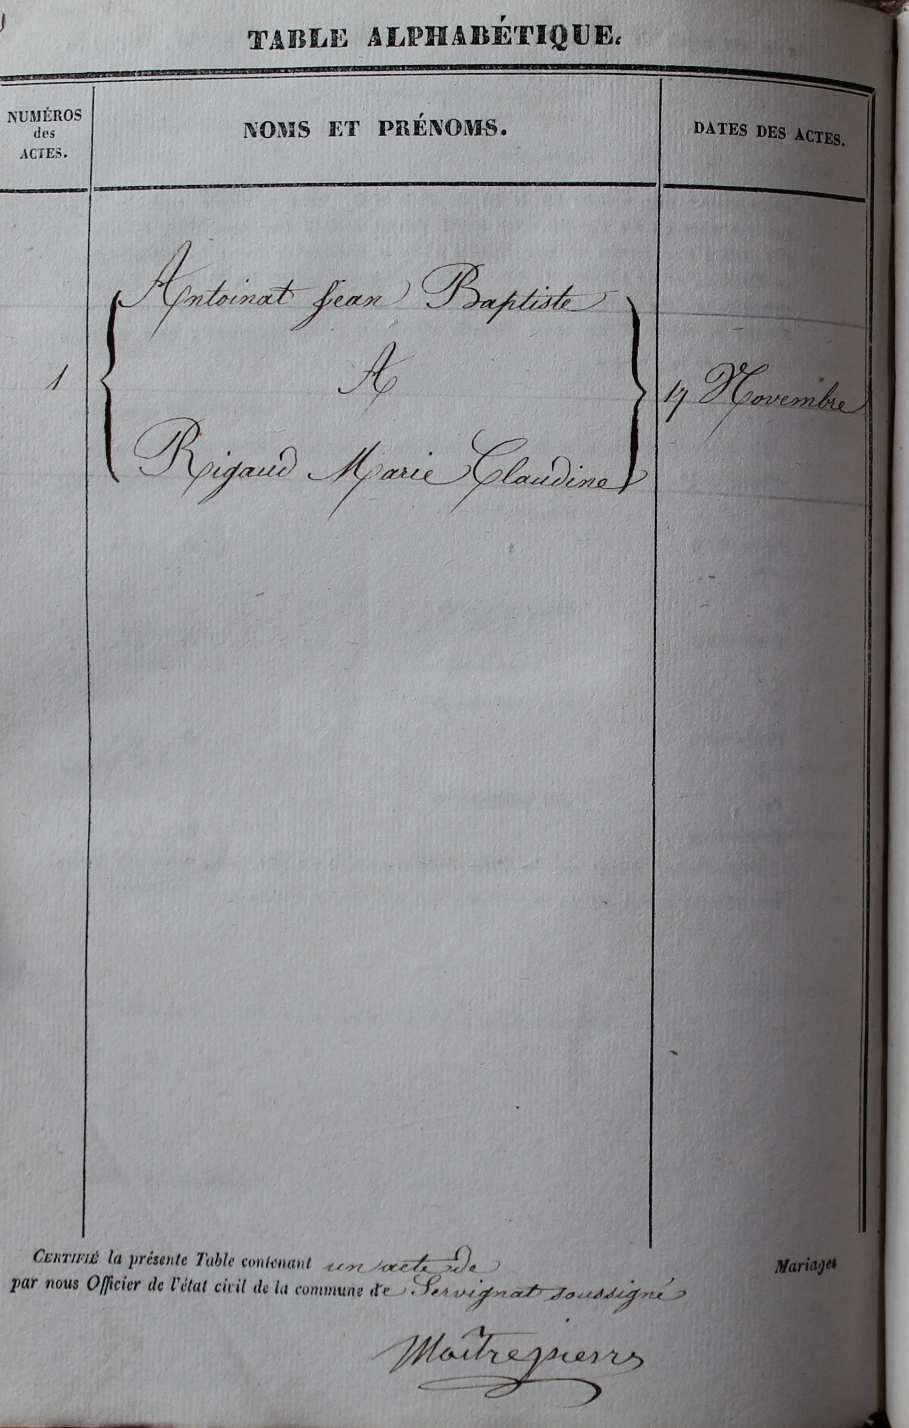 TABLE ALPHABÉTIQUE.
NUMÉROS
des
ACTES.
NOMS ET PRÉNOMS.
DATES DES ACTES.
Antoinat Jean Baptiste
1
A
17 Novembre
Rigaud Marie Claudine
CERTIFIÉ la présente Table contenant un acte de Mariages
par nous Officier de l'état civil de la commune de Servignat soussigné
Maîtrepierre